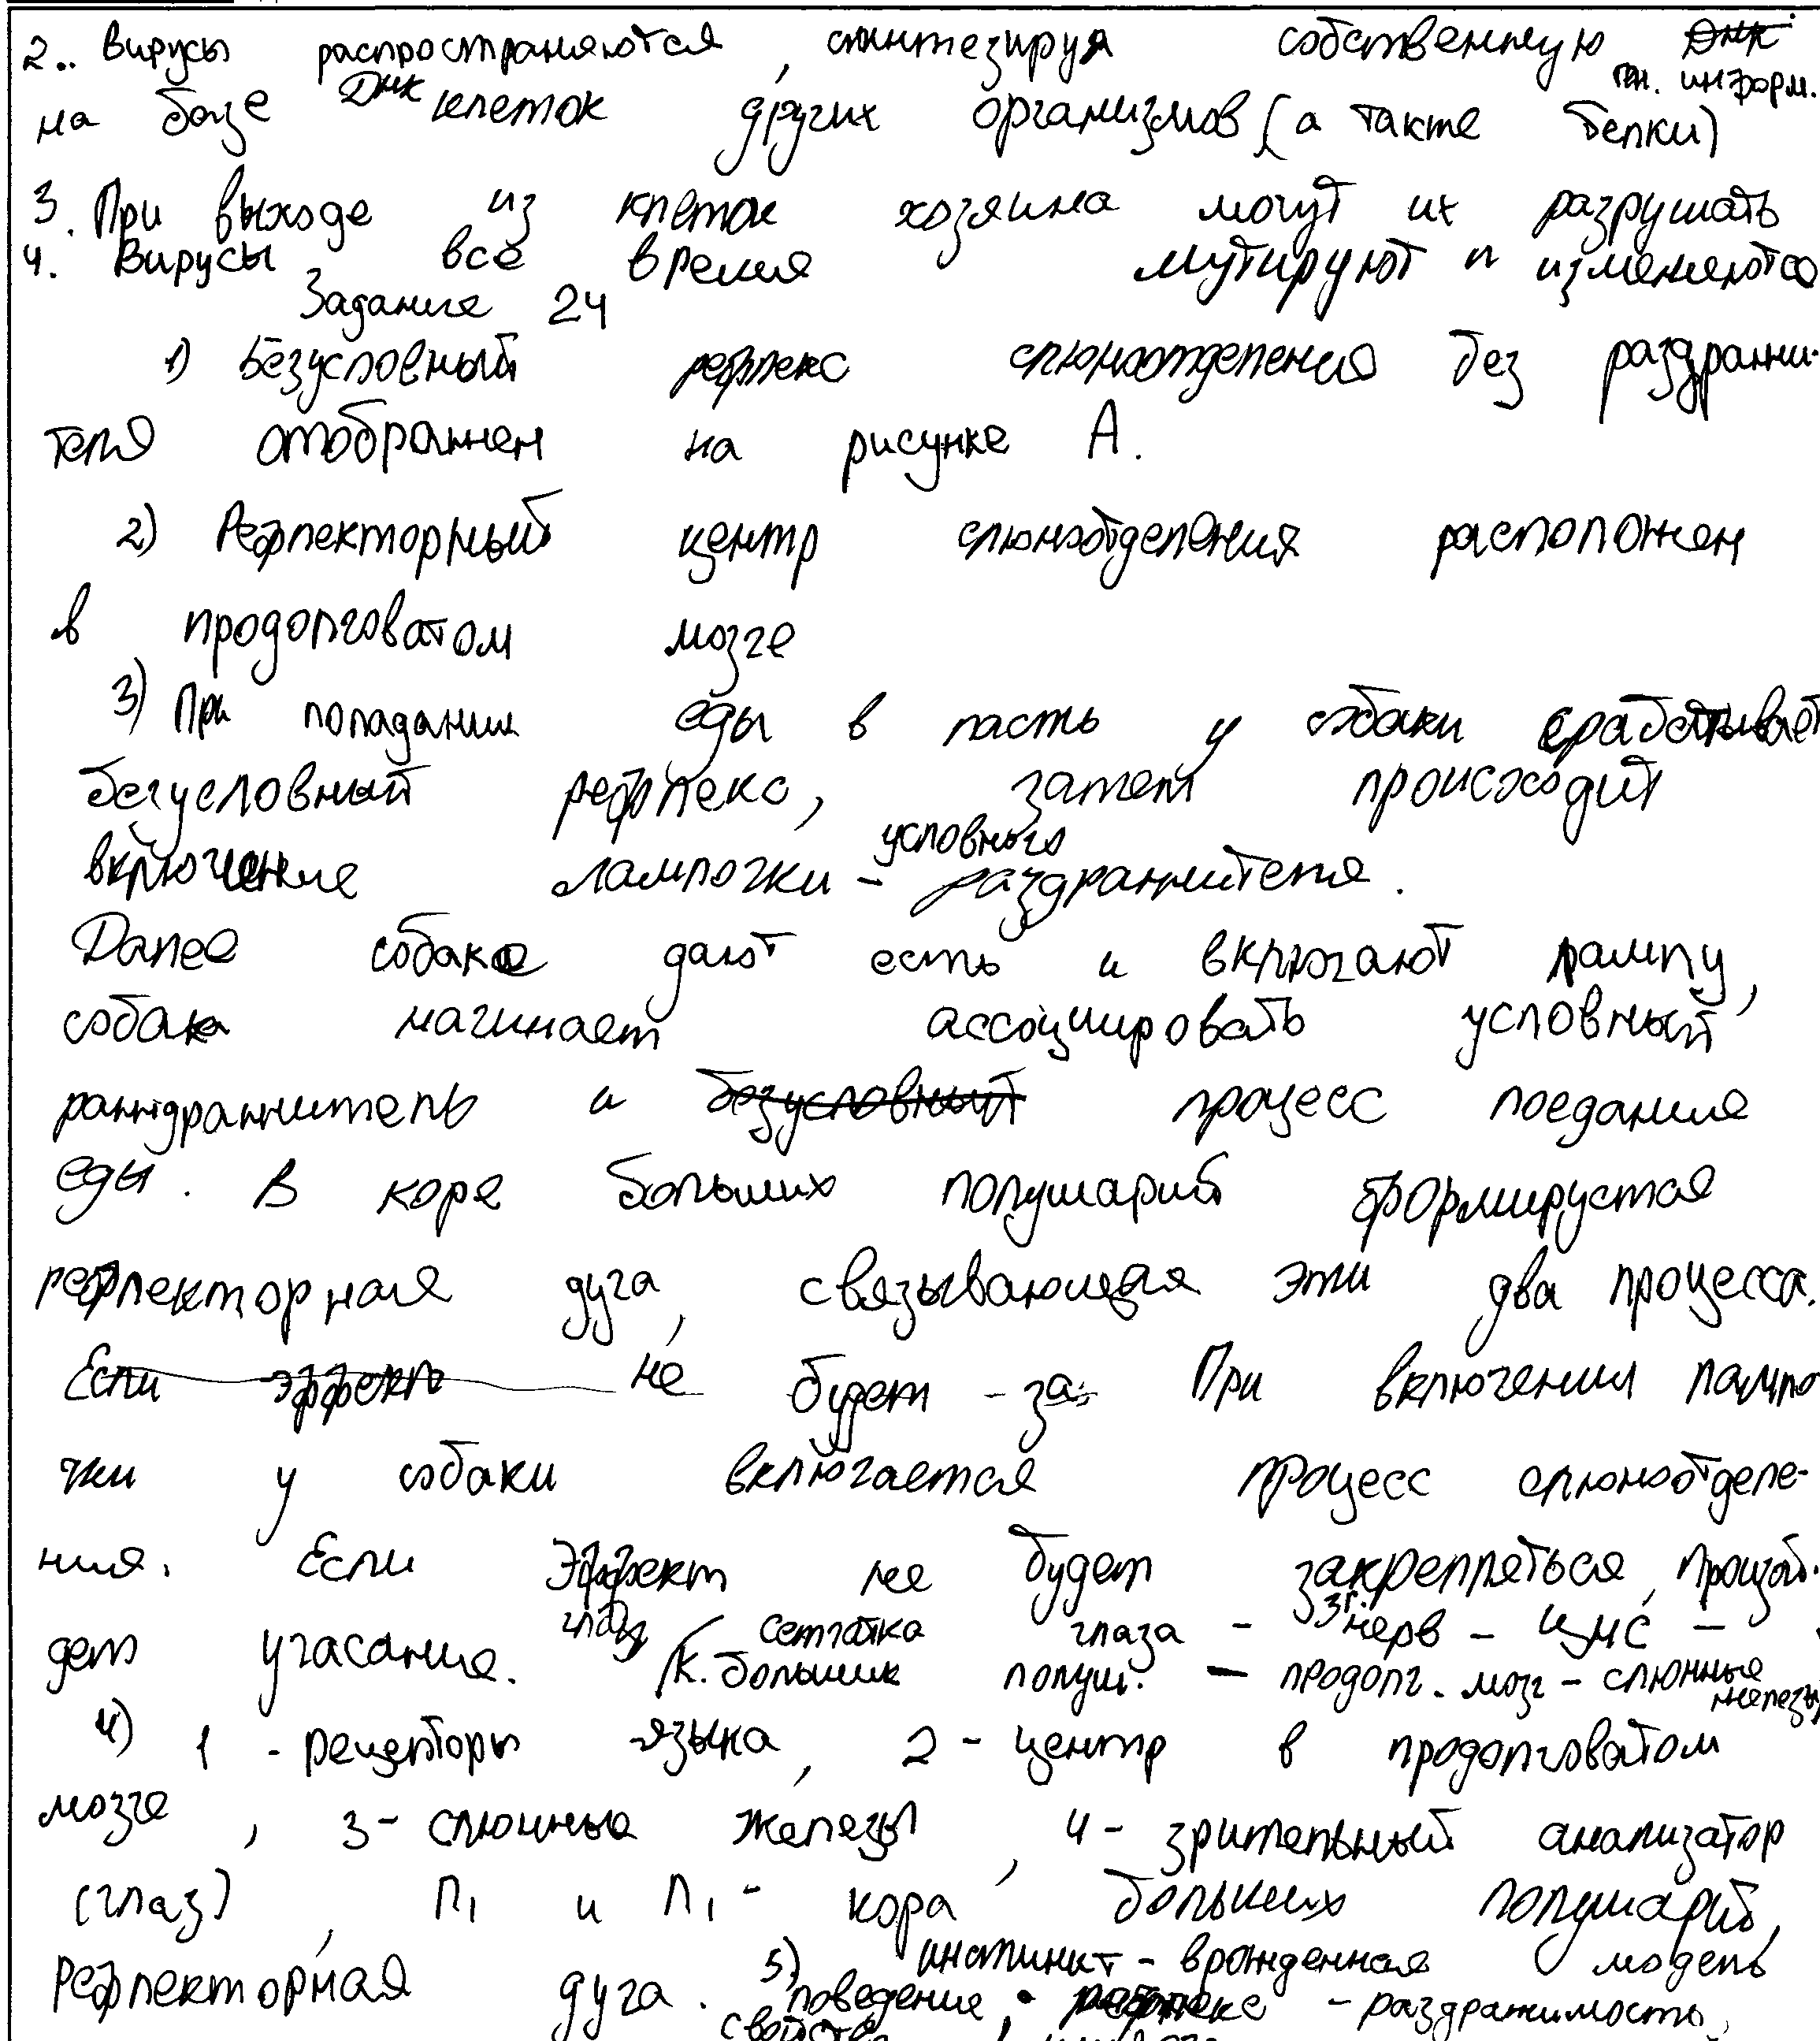 2.. Вирусы распространяются, синтезируя собственную ДНК
ген. информ.
на базе ДНК клеток других организмов (а также белки)
3. При выходе из клеток хозяина могут их разрушать
4. Вирусы все время мутируют и изменяются
Задание 24
1) Безусловный рефлекс слюноотделения без раздражи-
теля отображен на рисунке А.
2) Рефлекторный центр слюноотделения расположен
в продолговатом мозге
3) При попадании еды в пасть у собаки срабатывает
безусловный рефлекс, затем происходит
включение лампочки - условного раздражителя.
Далее собаке дают есть и включают лампу,
собака начинает ассоциировать условный
раждражитель и безусловный процесс поедания
еды. В коре больших полушарий формируется
рефлекторная дуга, связывающая эти два процесса.
Если эффект не будет - за При включении лампо
чки у собаки включается процесс слюноотделе-
ния. Если эффект не будет закрепляться, произой-
дет угасание. глаз сетчатка глаза - зр. нерв - ЦНС -
/к. больших полуш. - продолг. мозг - слюнные железы
4) 1 - рецепторы языка, 2 - центр в продолговатом
мозге, 3 - слюнные железы, 4 - зрительный анализатор
(глаз), П1 и П1 - кора больших полушарий,
рефлекторная дуга. 5) инстинкт - врожденная модель
поведение, рефлекс - раздражимость,
свойство